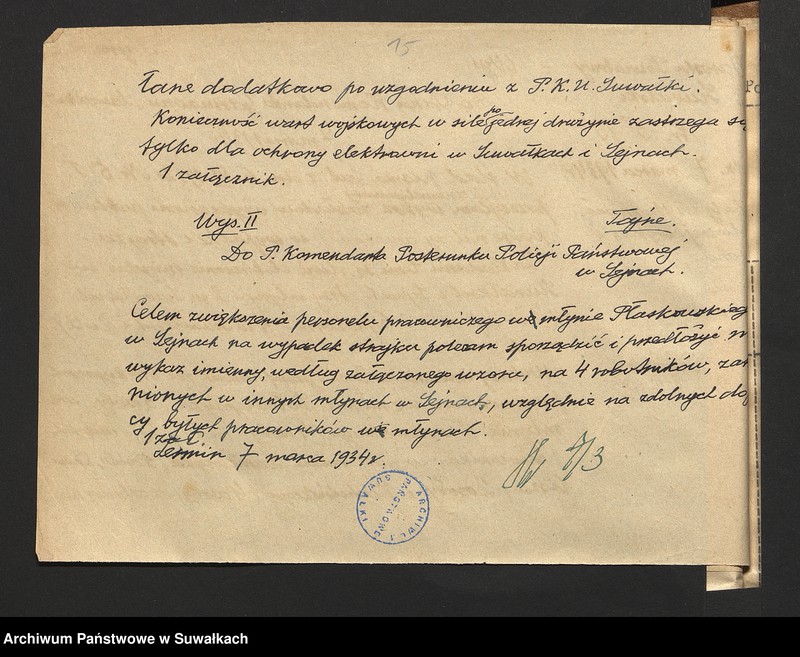 15
łane dodatkowo po uzgodnieniu z P.K.U. Suwałki.
Konieczność wart wojskowych w sile po jednej drużynie zastrzega się
tylko dla ochrony elektrowni w Suwałkach i Sejnach.
1 załącznik.
Wys. II Tajne.
Do P. Komendanta Posterunku Policji Państwowej
w Sejnach.
Celem zwiększenia personelu pracowniczego w młynie Płaskowskieg
w Sejnach na wypadek strajku polecam sporządzić i przedłożyć m
wykaz imienny, według załączonego wzoru, na 4 robotników, zat
nionych w innych młynach w Sejnach, względnie na zdolnych do
cy byłych pracowników w młynach.
1 zał.
Termin 7 marca 1934 r.
7/3
ARCHIWUM PAŃSTWOWE SUWAŁKI
Archiwum Państwowe w Suwałkach